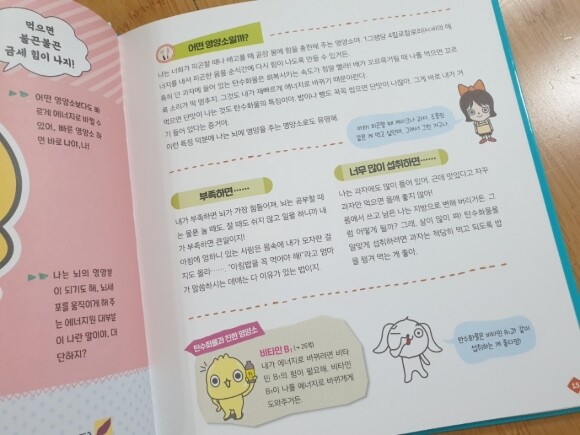 먹으면
불끈불끈
금세 힘이 나지!
어떤 영양소보다도 빠
르게 에너지로 바뀔 수
있어, 빠른 영양소 하
면 바로 나야, 나!
나는 뇌의 영양분
이 되기도 해. 뇌세
포를 움직이게 해 주
는 에너지원 대부분
이 나란 말이야. 대
단하지?
어떤 영양소일까?
나는 너희가 피곤할 때나 배고플 때 곧장 몸에 힘을 충전해 주는 영양소야. 1그램당 4킬로칼로리의 에
너지를 내서 피곤한 몸을 순식간에 다시 힘이 나도록 만들 수 있거든.
특히 단 과자에 들어 있는 탄수화물은 회복시키는 속도가 정말 빨라! 배가 꼬르륵거릴 때 나를 먹으면 꼬르
륵 소리가 딱 멈추지. 그것도 내가 재빠르게 에너지로 바뀌기 때문이란다.
먹으면 단맛이 나는 것도 탄수화물의 특징이야. 밥이나 빵도 꼭꼭 씹으면 단맛이 나잖아. 그게 바로 내가 거
기 들어 있다는 증거야.
이런 특징 덕분에 나는 뇌에 영양을 주는 영양소로도 유명해.
부족하면……
내가 부족하면 뇌가 가장 힘들어져. 뇌는 공부할 때
는 물론 놀 때도, 잘 때도 쉬지 않고 일을 하니까 내
가 부족하면 큰일이지!
아침에 멍하니 있는 사람은 몸속에 내가 모자란 걸
지도 몰라……. "아침밥을 꼭 먹어야 해!"라고 엄마
가 말씀하시는 데에는 다 이유가 있는 법이지.
너무 많이 섭취하면……
나는 과자에도 많이 들어 있어. 근데 맛있다고 자꾸
과자만 먹으면 몸에 좋지 않아!
몸에서 쓰고 남은 나는 지방으로 변해 버리거든. 그
럼 어떻게 될까? 그래, 살이 많이 쪄! 탄수화물을
알맞게 섭취하려면 과자는 적당히 먹고 되도록 밥
을 챙겨 먹는 게 좋아.
탄수화물과 친한 영양소
비타민 B₁ (→26쪽)
내가 에너지로 바뀌려면 비타
민 B₁의 힘이 필요해. 비타민
B₁이 나를 에너지로 바뀌게끔
도와주거든.
탄수화물은 비타민 B₁과 같이
섭취하는 게 좋대멍!
15